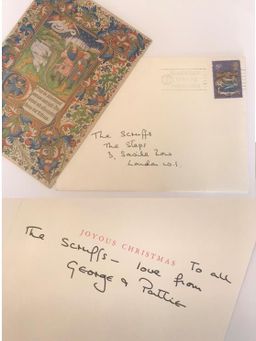 The Scruffs
The Steps
3, Savile Row
London W.1
JOYOUS CHRISTMAS
To all
The Scruffs - love from
George & Pattie